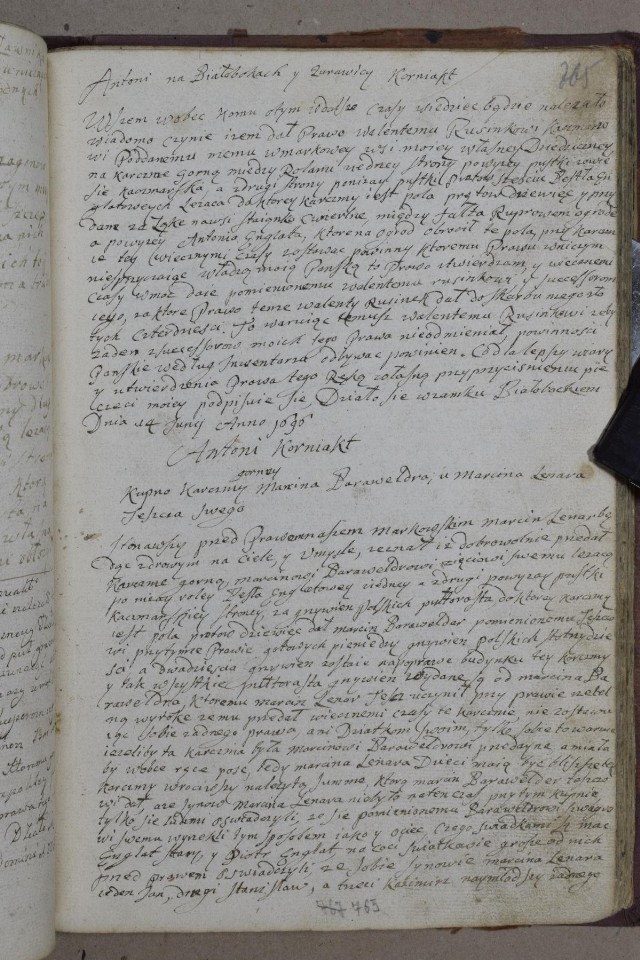 765
Antoni na Białobokach y Zurawicy Korniakt
Wszem wobec komu otym wdalsze czasy wiedziec będzie nalezało
wiadomo czynie izem dał Prawo walentemu Rusinkowi Karczmarzo
wi Poddanemu memu wmarkowey wsi moiey własney Dziedziczney
na karczme gorną między Rolami zedney strony powyzy pustki zowie
sie kaczmarska a zdrugi strony ponizay pustki
Lezaca do ktorey karczmy iest pola prętow dziewięc y przy
dane za Łąke nawsi staionko
a powyzey Antonia Englata, ktorena ogrod obrocił te pola, przy karczm
ie tey wiecznemi czasy zostawac powinny ktoremu Prawu wniczym
niesprzyczaiąc władzą moią Panską to Prawo utwierdzam, y wieczne
czasy wmoc daie pomienionemu walentemu rusinkowi y sukcessorom
iego, za ktore Prawo tenze walenty Rusinek dał do skarbu mego zło
tych czterdziesci. To waruiąc temuz walentemu Rusinkowi zeby
zaden zsuccessorow moich tego Prawa nieodmieniał, powinności
Panskie według Inwentarza odbywac powinien. Co dla lepszy wiary
y utwierdzenia Prawa tego Ręką własną przy przycisnieniu pie
częci moiey podpisuie sie Działo sie wzamku Białobockiem
Dnia 14 Junij Anno 1696
Antoni Korniakt
Kupno Karczmy gorney Marcina Barawełdra, u Marcina Lenara
Tescia swego
Stanąwszy przed Prawem naszem Markowskim marcin Lenar bę
dąc zdrowym na ciele, y Umysle, zeznał iz dobrowolnie przedał
Karczme gorną, marcinowi Barawełdrowi zięciowi swemu lezącą
po miedzy roley Jesta Englotowey ziedney a zdrugi powyzey pustki
Kaczmarskiey strony, za grzywien polskich pułtorasta do ktorey karczmy
iest pola prętow dziewiec dał marcin Barawelder pomienionemu Tescio
wi przytymze Prawie gotowych pieniędzy grzywien polskich
sci a dwadziescia grzywien zostaie na poprawe budynku tey karczmy
y tak wszystkie pułtorasta grzywien wydane są od marcina Ba
rawełdra, Ktoremu marcin Lenar Tesc uczynił przy prawie zupeł
ną wyrzeke zemu przedał wiecznemi czasy te karczme nie zostawu
iąc sobie zadnego prawa, ani Dziatkom swoim, tylko sobie to waruie
iezeliby ta karczma była marcinowi Barawełdrowi przedayna a miała
by wobce ręce posc, tedy marcina Lenara Dzieci maią byc blizsze tey
karczmy wrociwszy nalezytą summe, ktorą marcin Barawelder tescio
wi dał, ale synow Marcina Lenara niebyło na ten czas przytym kupnie
tylko sie Sądowi oswiadczyli, ze sie pomienionemu Barawełdrowi swagro
wi swemu wyrzekli tym sposobem iako y ociec, czego swiadkami są mac
Englat stary, y Piotr Englat na coci swiatkowie grosze od nich
przed prawem Oswiadczyli ze sobie synowie marcina Lenara
ieden Jan, drugi Stanisław, a trzeci Kazimirz naymłodszy zadnego
767 765